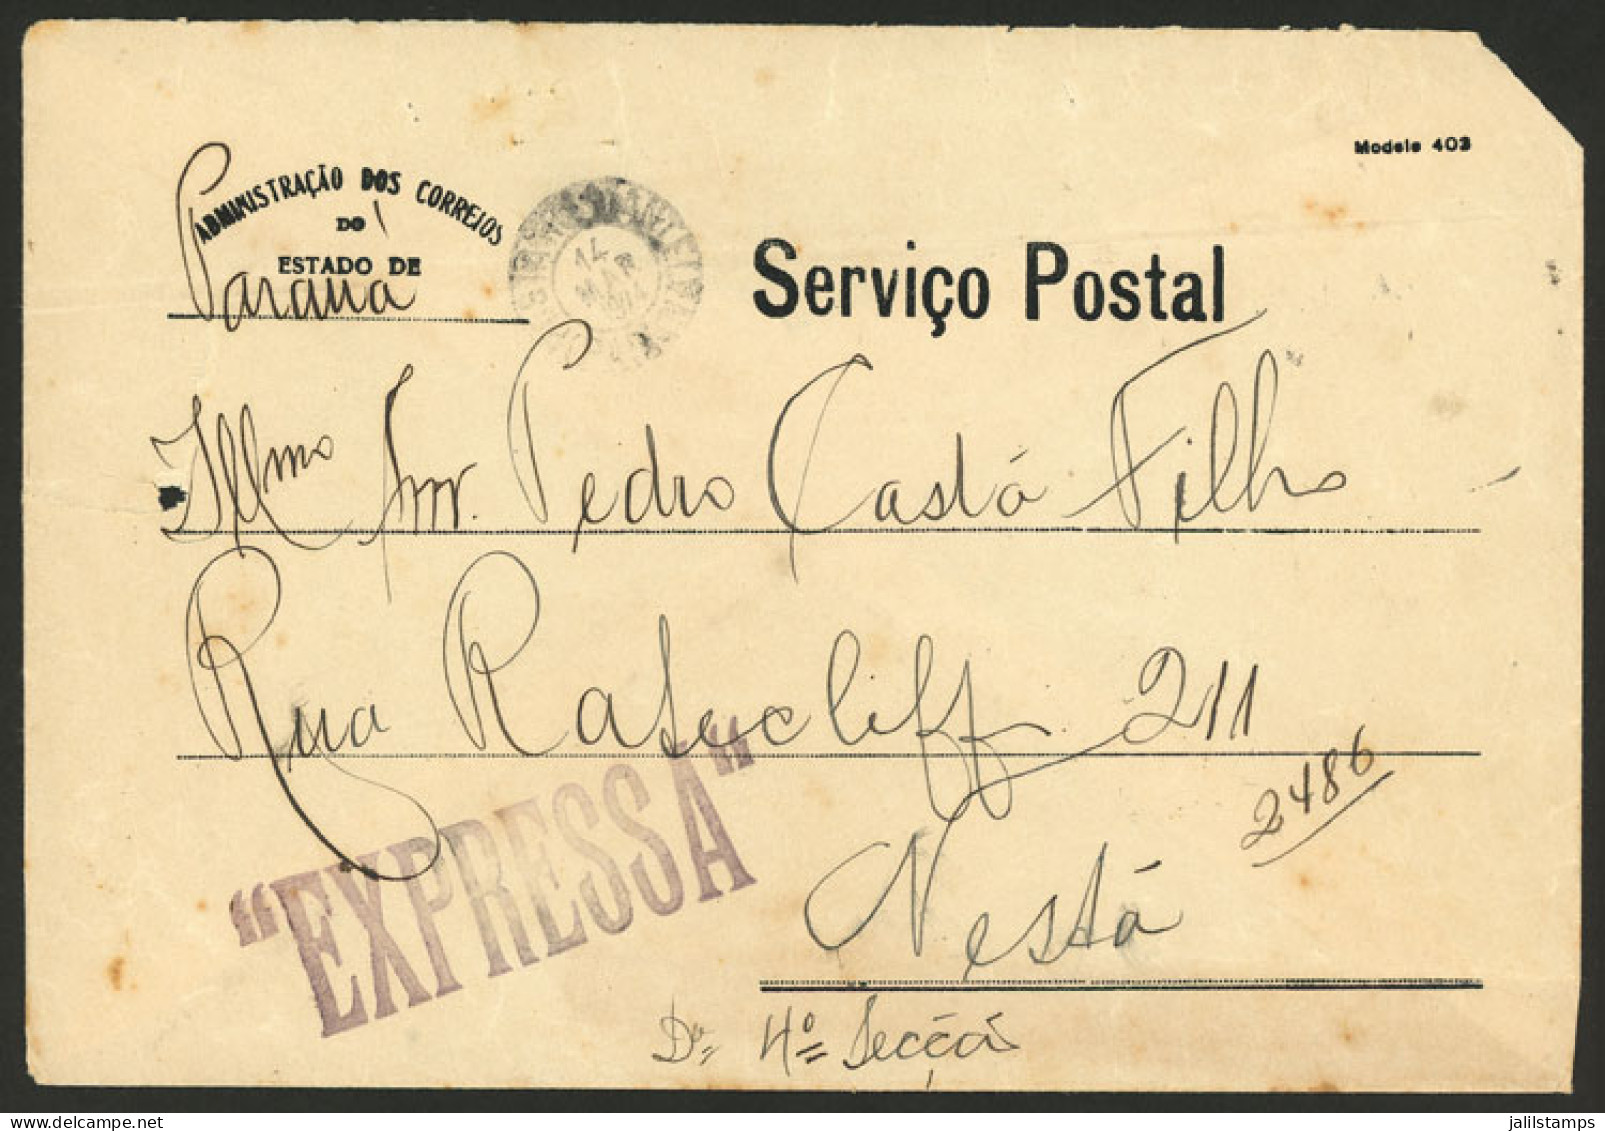 Modelo 403
ADMINISTRAÇÃO DOS CORREIOS
DO
ESTADO DE
Paraná
14
MAR
Serviço Postal
Illmo Snr. Pedro Castá Filho
Rua Ratecliff 211
2486
"EXPRESSA"
Nestá
Da 4a Secçã
jalilstamps